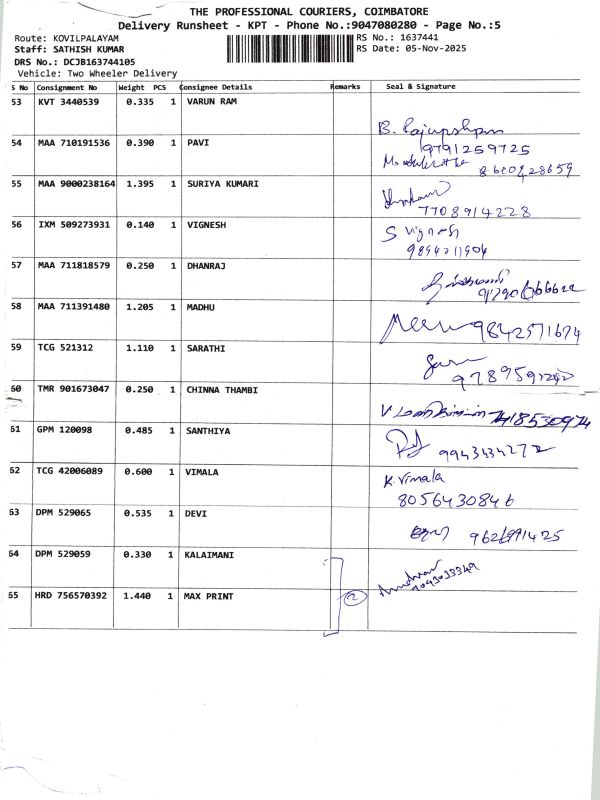 THE PROFESSIONAL COURIERS, COIMBATORE
Delivery Runsheet - KPT - Phone No.:9047080280 - Page No.:5
Route: KOVILPALAYAM
RS No.: 1637441
Staff: SATHISH KUMAR
RS Date: 05-Nov-2025
DRS No.: DCJB163744105
Vehicle: Two Wheeler Delivery
S No Consignment No Weight PCS Consignee Details Remarks Seal & Signature
53 KVT 3440539 0.335 1 VARUN RAM
B.
9791259725
54 MAA 710191536 0.390 1 PAVI
55 MAA 9000238164 1.395 1 SURIYA KUMARI
7708914228
56 IXM 509273931 0.140 1 VIGNESH
S Vignesh
57 MAA 711818579 0.250 1 DHANRAJ
58 MAA 711391480 1.205 1 MADHU
9842571674
59 TCG 521312 1.110 1 SARATHI
60 TMR 901673047 0.250 1 CHINNA THAMBI
7418530974
61 GPM 120098 0.485 1 SANTHIYA
9943434272
62 TCG 42006089 0.600 1 VIMALA
K. Vimala
8056430846
63 DPM 529065 0.535 1 DEVI
9626991425
64 DPM 529059 0.330 1 KALAIMANI
65 HRD 756570392 1.440 1 MAX PRINT 2